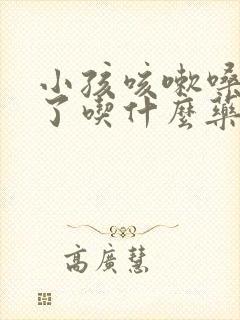 小孩咳嗽嗓
了喫什麼藥
高廣慧